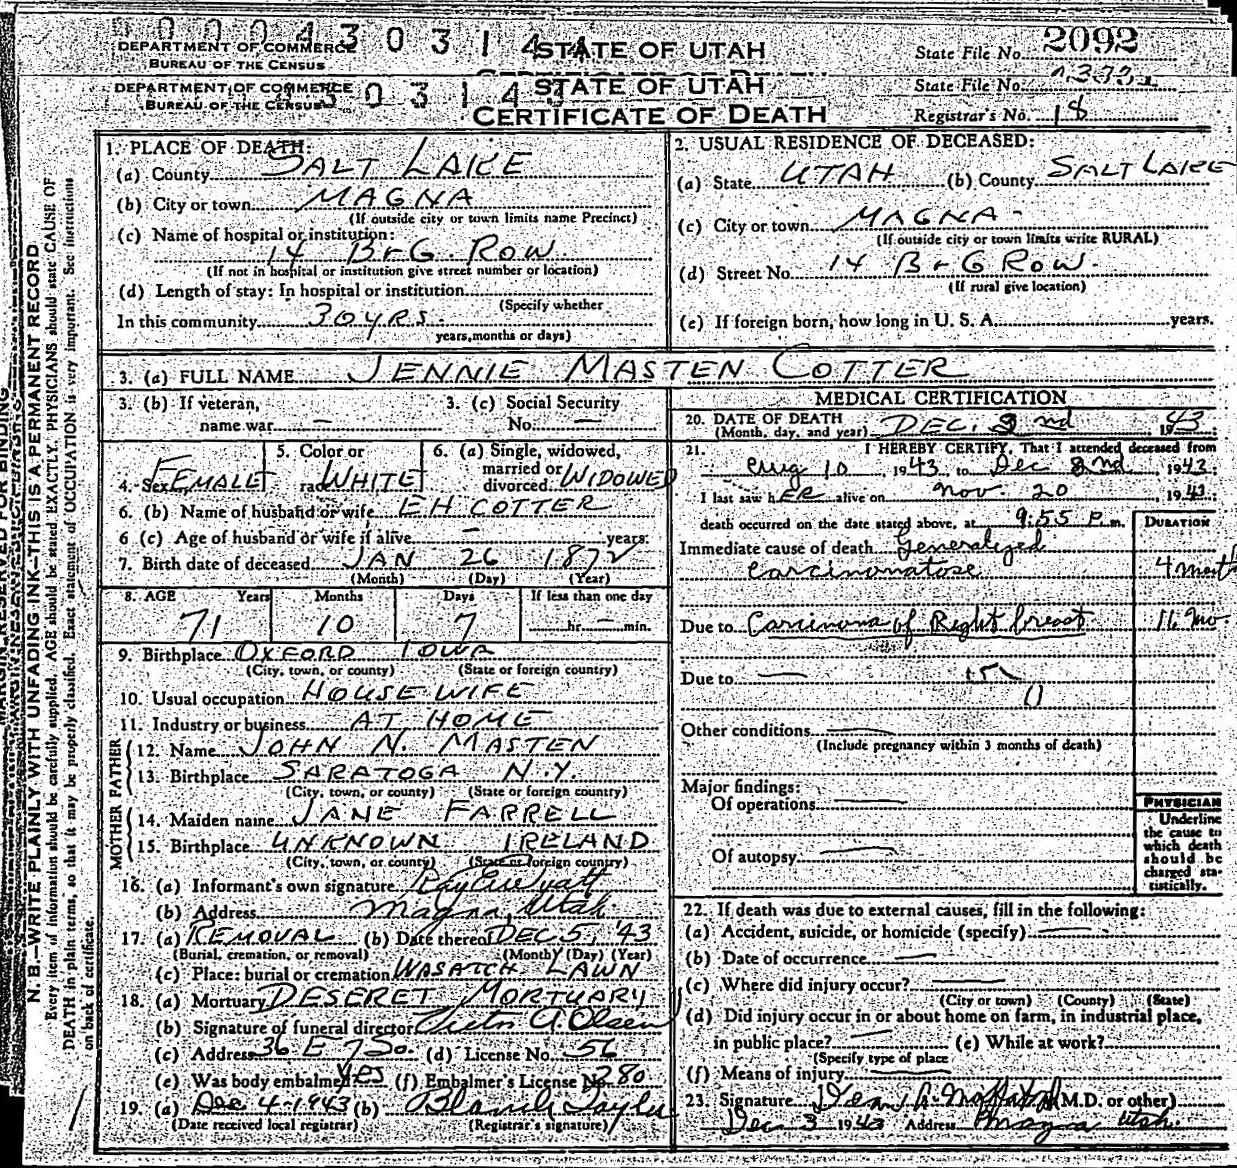 0 0 0 4 3 0 3 1 4
DEPARTMENT OF COMMERCE
BUREAU OF THE CENSUS
STATE OF UTAH
State File No. 2092
DEPARTMENT OF COMMERCE
BUREAU OF THE CENSUS
STATE OF UTAH
State File No.
CERTIFICATE OF DEATH
Registrar's No. 18
MARGIN RESERVED FOR BINDING
N. B.—WRITE PLAINLY WITH UNFADING INK—THIS IS A PERMANENT RECORD
Every item of information should be carefully supplied. AGE should be stated EXACTLY. PHYSICIANS should state CAUSE OF
DEATH in plain terms, so that it may be properly classified. Exact statement of OCCUPATION is very important. See instructions
on back of certificate.
1. PLACE OF DEATH:
(a) County SALT LAKE
(b) City or town MAGNA
(If outside city or town limits name Precinct)
(c) Name of hospital or institution:
14 B+G ROW
(If not in hospital or institution give street number or location)
(d) Length of stay: In hospital or institution
(Specify whether
In this community 30 YRS.
years, months or days)
2. USUAL RESIDENCE OF DECEASED:
(a) State UTAH (b) County SALT LAKE
(c) City or town MAGNA
(If outside city or town limits write RURAL)
(d) Street No. 14 B+G ROW.
(If rural give location)
(e) If foreign born, how long in U. S. A. years.
3. (a) FULL NAME JENNIE MASTEN COTTER
3. (b) If veteran, name war —
3. (c) Social Security No. —
4. Sex FEMALE
5. Color or race WHITE
6. (a) Single, widowed, married or divorced WIDOWED
6. (b) Name of husband or wife E H COTTER
6 (c) Age of husband or wife if alive — years.
7. Birth date of deceased JAN 26 1872
(Month) (Day) (Year)
8. AGE Years Months Days If less than one day
71 10 7 hr. — min.
9. Birthplace OXFORD IOWA
(City, town, or county) (State or foreign country)
10. Usual occupation HOUSEWIFE
11. Industry or business AT HOME
FATHER
12. Name JOHN N. MASTEN
13. Birthplace SARATOGA N.Y.
(City, town, or county) (State or foreign country)
MOTHER
14. Maiden name JANE FARRELL
15. Birthplace UNKNOWN IRELAND
(City, town, or county) (State or foreign country)
16. (a) Informant's own signature Wyatt
(b) Address Magna, Utah
17. (a) REMOVAL (b) Date thereof DEC 5, '43
(Burial, cremation, or removal) (Month) (Day) (Year)
(c) Place: burial or cremation WASATCH LAWN
18. (a) Mortuary DESERET MORTUARY
(b) Signature of funeral director Victor A. Olsen
(c) Address 36 E 7 So. (d) License No. 56
(e) Was body embalmed Yes (f) Embalmer's License No. 280
19. (a) Dec 4-1943 (b) Blanch Taylor
(Date received local registrar) (Registrar's signature)
MEDICAL CERTIFICATION
20. DATE OF DEATH DEC. 2nd 1943
(Month, day, and year)
21. I HEREBY CERTIFY, That I attended deceased from
Aug 10 1943 to Dec 2nd, 1943
I last saw hER alive on Nov. 20, 1943
death occurred on the date stated above, at 9:55 P. m.
DURATION
Immediate cause of death Generalized
carcinomatose 4 month
Due to Carcinoma of Right breast 16 mo
Due to —
Other conditions —
(Include pregnancy within 3 months of death)
Major findings:
Of operations —
Of autopsy —
PHYSICIAN
Underline the cause to which death should be charged statistically.
22. If death was due to external causes, fill in the following:
(a) Accident, suicide, or homicide (specify) —
(b) Date of occurrence —
(c) Where did injury occur? —
(City or town) (County) (State)
(d) Did injury occur in or about home on farm, in industrial place,
in public place? — (e) While at work?
(Specify type of place
(f) Means of injury —
23. Signature Dean A. Moffat (M.D. or other)
Dec 3 1943 Address Magna Utah.